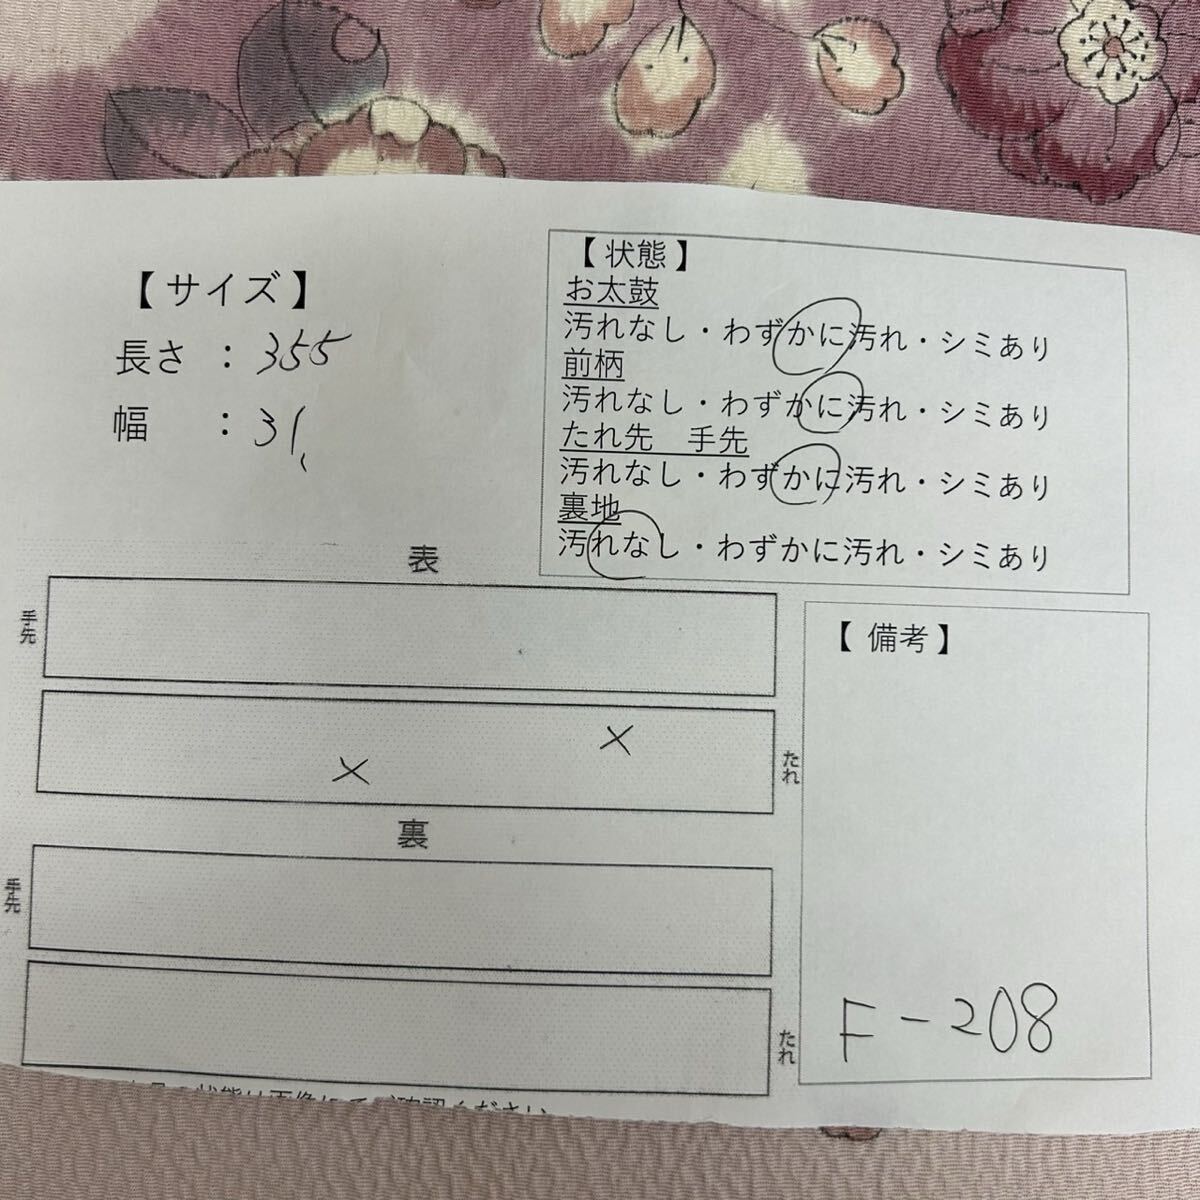 【サイズ】
長さ : 355
幅 : 31
【状態】
お太鼓
汚れなし・わずかに汚れ・シミあり
前柄
汚れなし・わずかに汚れ・シミあり
たれ先 手先
汚れなし・わずかに汚れ・シミあり
裏地
汚れなし・わずかに汚れ・シミあり
表
手先
×
×
たれ
裏
手先
たれ
【備考】
F-208
状態は画像にてご確認ください